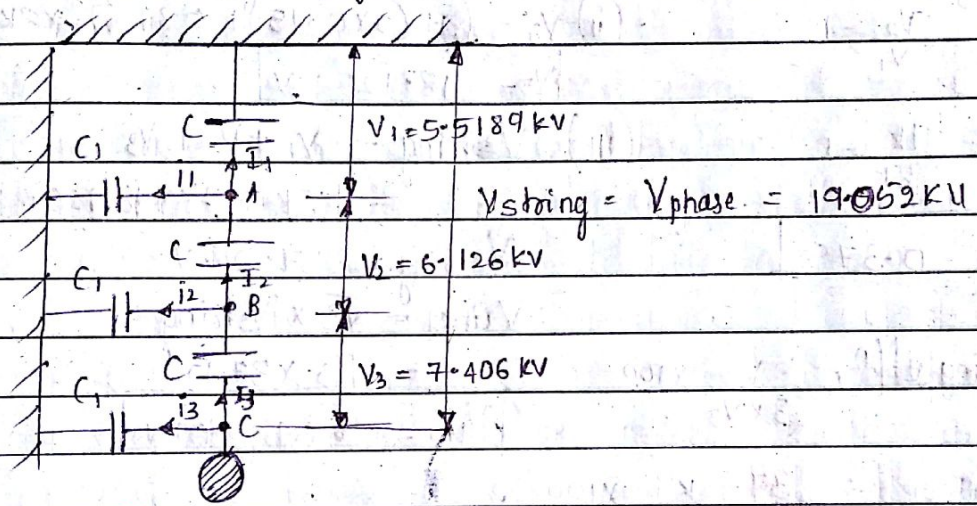 C
V1=5.5189 kV
C1
I1
i1
A
Vstring = Vphase = 19.052KV
C
V2 = 6.126 kV
C1
I2
i2
B
C
V3 = 7.406 kV
C1
I3
i3
C